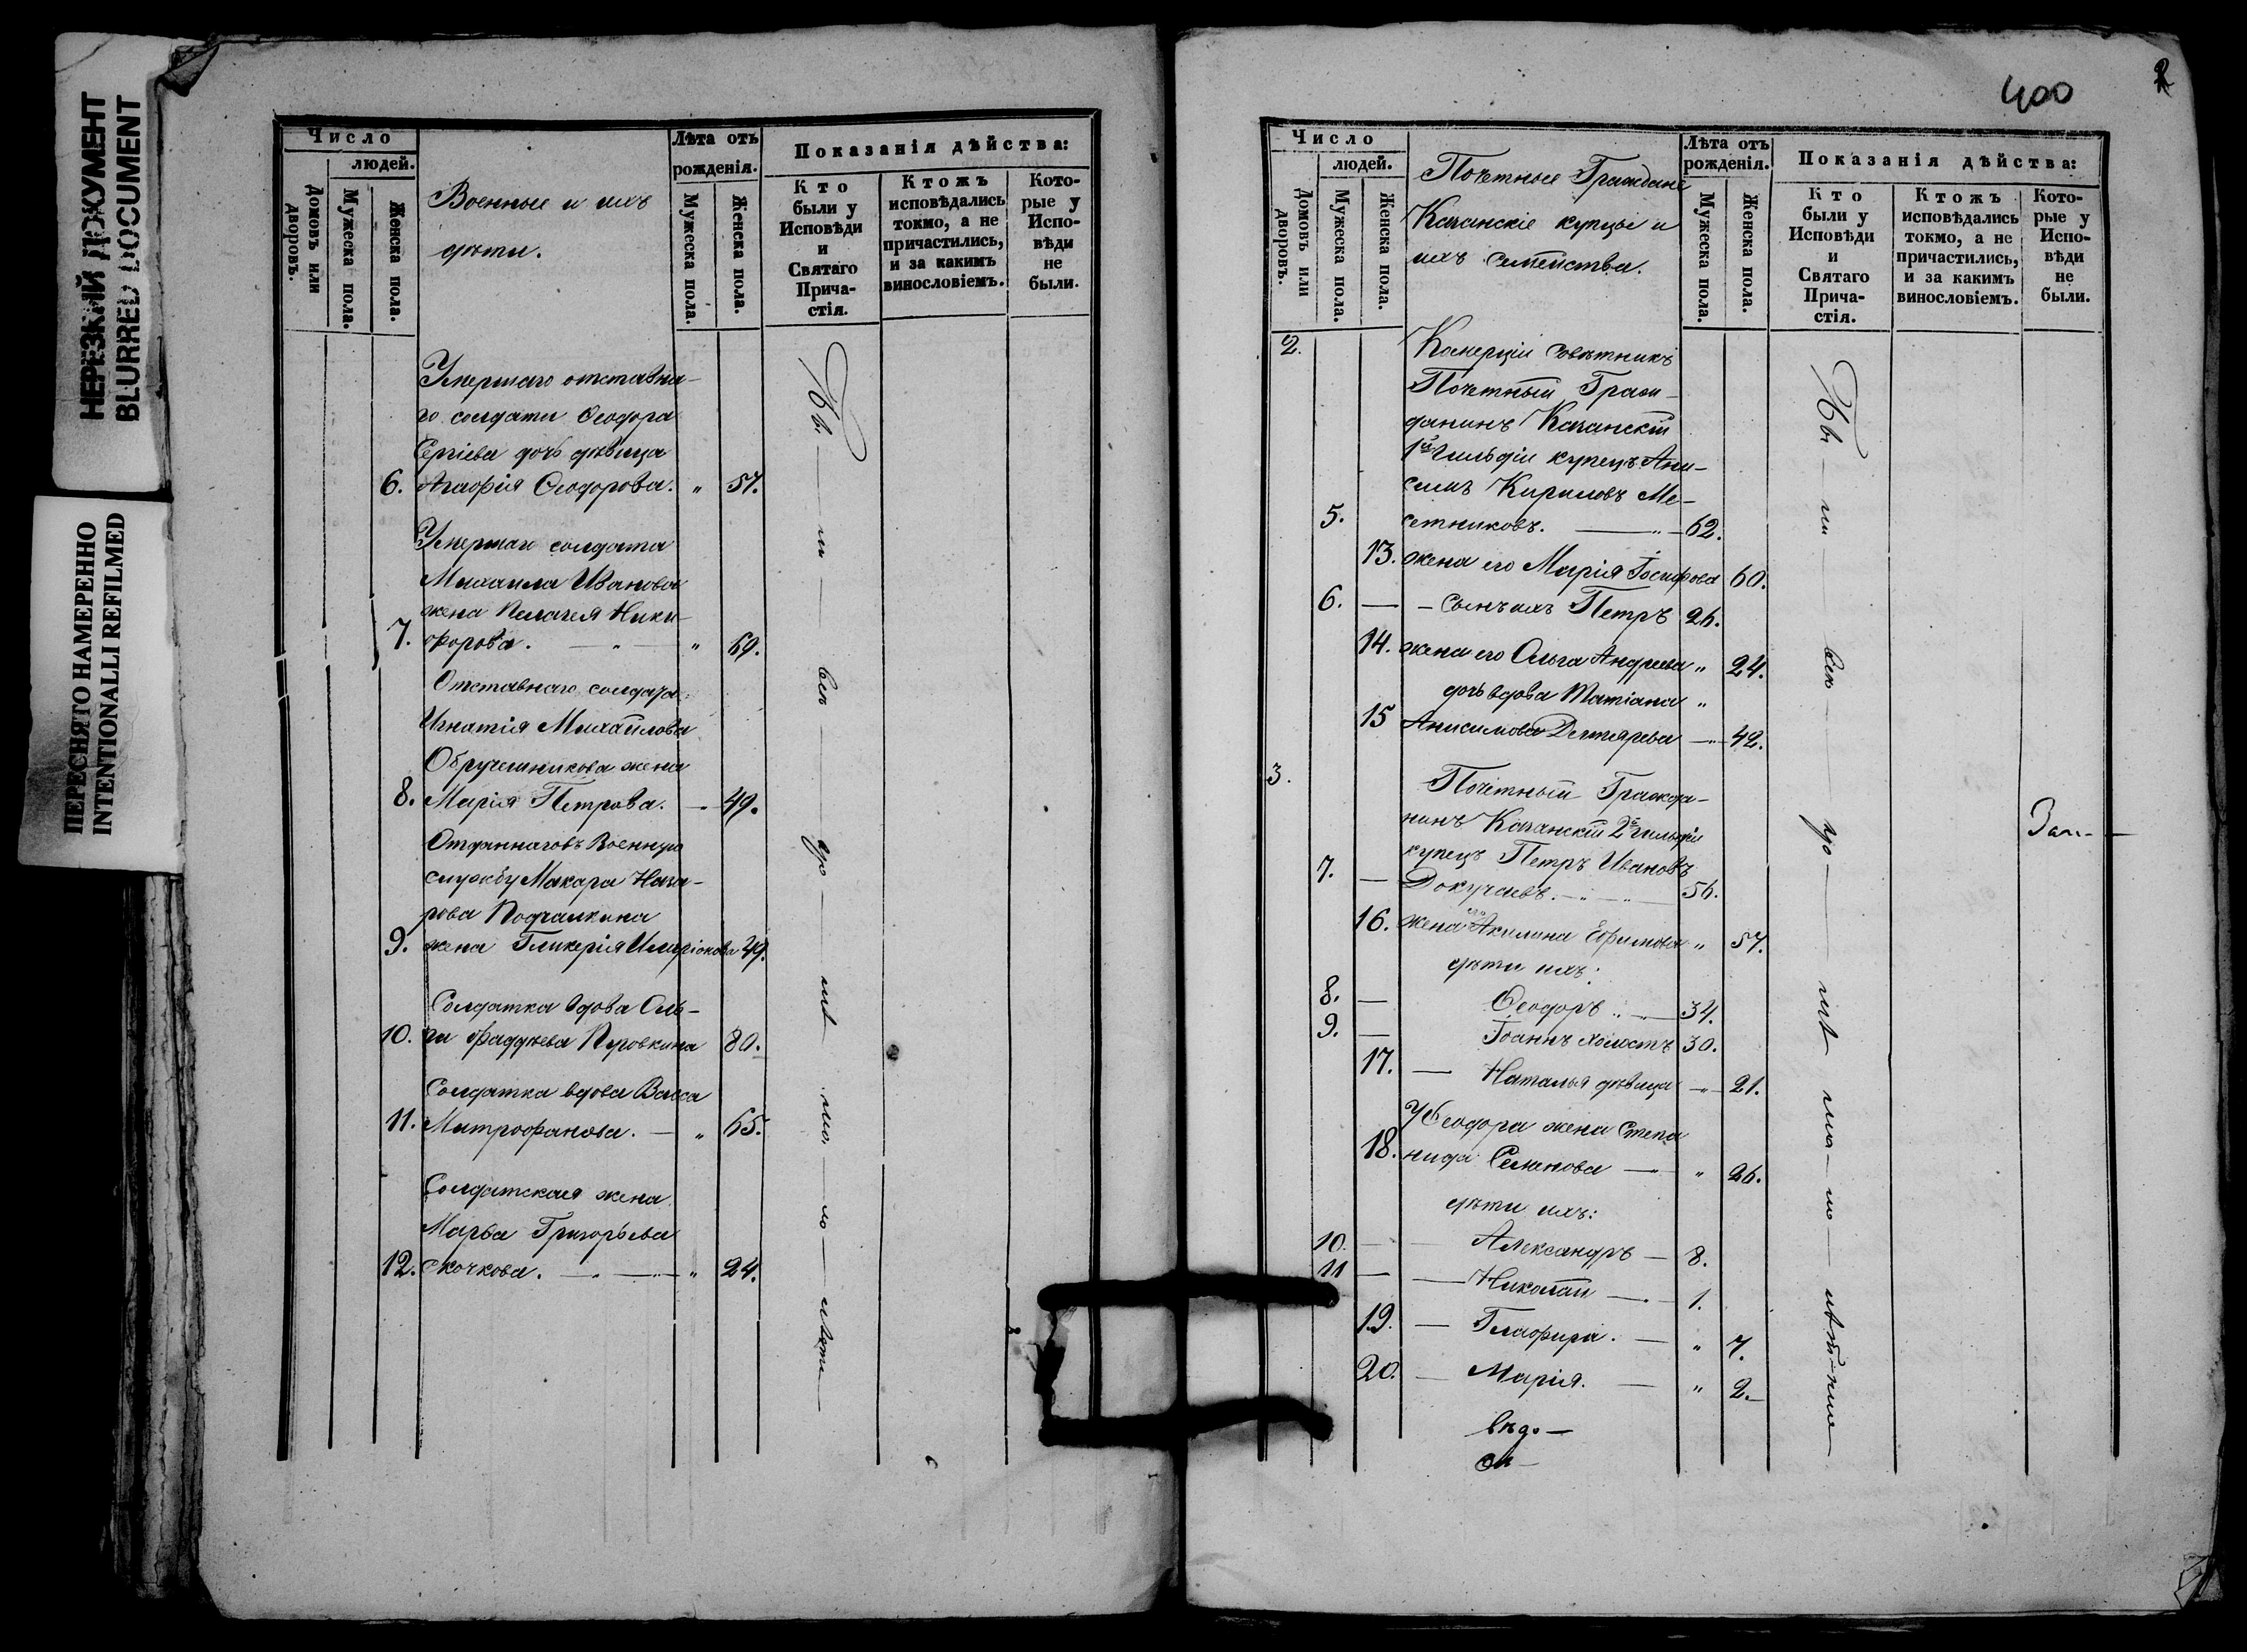 НЕРЕЗКИЙ ДОКУМЕНТ
BLURRED DOCUMENT
ПЕРЕСНЯТО НАМЕРЕННО
INTENTIONALLI REFILMED
Число
людей.
Домовъ или дворовъ.
Мужеска пола.
Женска пола.
Военные и ихъ
дѣти.
Лѣта отъ
рожденія.
Мужеска пола.
Женска пола.
Показанія дѣйства:
Кто
были у
Исповѣди
и
Святаго
Прича-
стія.
Ктожъ
исповѣдались
токмо, а не
причастились,
и за какимъ
винословіемъ.
Кото-
рые у
Испо-
вѣди
не
были.
Умершаго отставна-
го солдата Ѳеодора
Сергіева дочь дѣвица
6. Агафія Ѳеодорова. " 57.
Умершаго солдата
Михаила Иванова
жена Пелагея Ники-
7. форова. " 69.
Отставнаго солдата
Игнатія Михайлова
Обручешникова жена
8. Марія Петрова. 49.
Отданнаговъ Военную
службу Макара Наза-
рова
9. жена Гликерія Иларіонова 49.
Солдатка вдова Оль-
10. га Фаддѣева 80.
Солдатка вдова Васса
11. Митрофанова. " 65.
Солдатская жена
Марья Григорьева
12. Скочкова. " 24.
400
2
Число
людей.
Домовъ или дворовъ.
Мужеска пола.
Женска пола.
Почетные Граждане
Казанскіе купцы и
ихъ семейства.
Лѣта отъ
рожденія.
Мужеска пола.
Женска пола.
Показанія дѣйства:
Кто
были у
Исповѣди
и
Святаго
Прича-
стія.
Ктожъ
исповѣдались
токмо, а не
причастились,
и за какимъ
винословіемъ.
Кото-
рые у
Испо-
вѣди
не
были.
2. Комерціи Совѣтникъ
Почетный Граж-
данинъ Казанскій
1й гильдіи купецъ Ани-
симъ Кириловъ Ме-
5. сетниковъ. 62.
13. жена его Марія Іосифова 60.
6. Сынъ ихъ Петръ 26.
14. жена его Ольга Андреева " 24.
дочь вдова Татіана "
15 Анисимова Дегтярева 42.
3. Почетный Гражда-
нинъ Казанскій 2й гильдіи
купецъ Петръ Ивановъ
7. Докучаевъ. 56.
16. жена его Акилина Ефимова " 57.
дѣти ихъ:
8. Ѳеодоръ 34.
9. Іоаннъ холостъ 30.
17. Наталья дѣвица 21.
У Ѳеодора жена Степа
18. нида Семенова " 26.
дѣти ихъ:
10. Александръ 8.
11 Николай 1.
19. Глафира. " 7.
20. Марія. " 2.